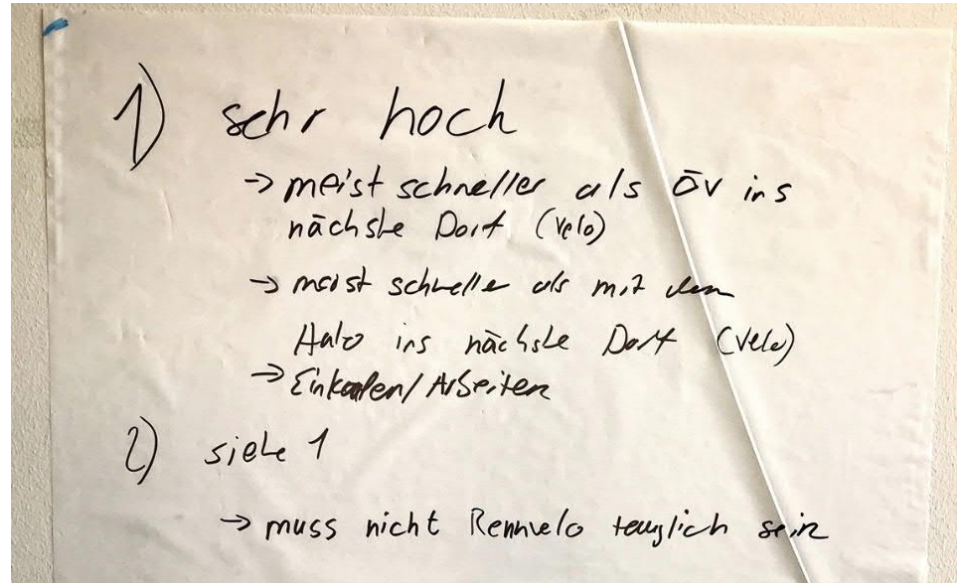 1) sehr hoch
→ meist schneller als ÖV ins
nächste Dorf (Velo)
→ meist schneller als mit dem
Auto ins nächste Dorf (Velo)
→ Einkaufen/Arbeiten
2) siehe 1
→ muss nicht Rennvelo tauglich sein